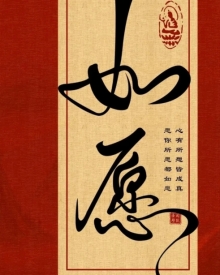 如愿
心有所想皆成真
愿你所愿都如愿